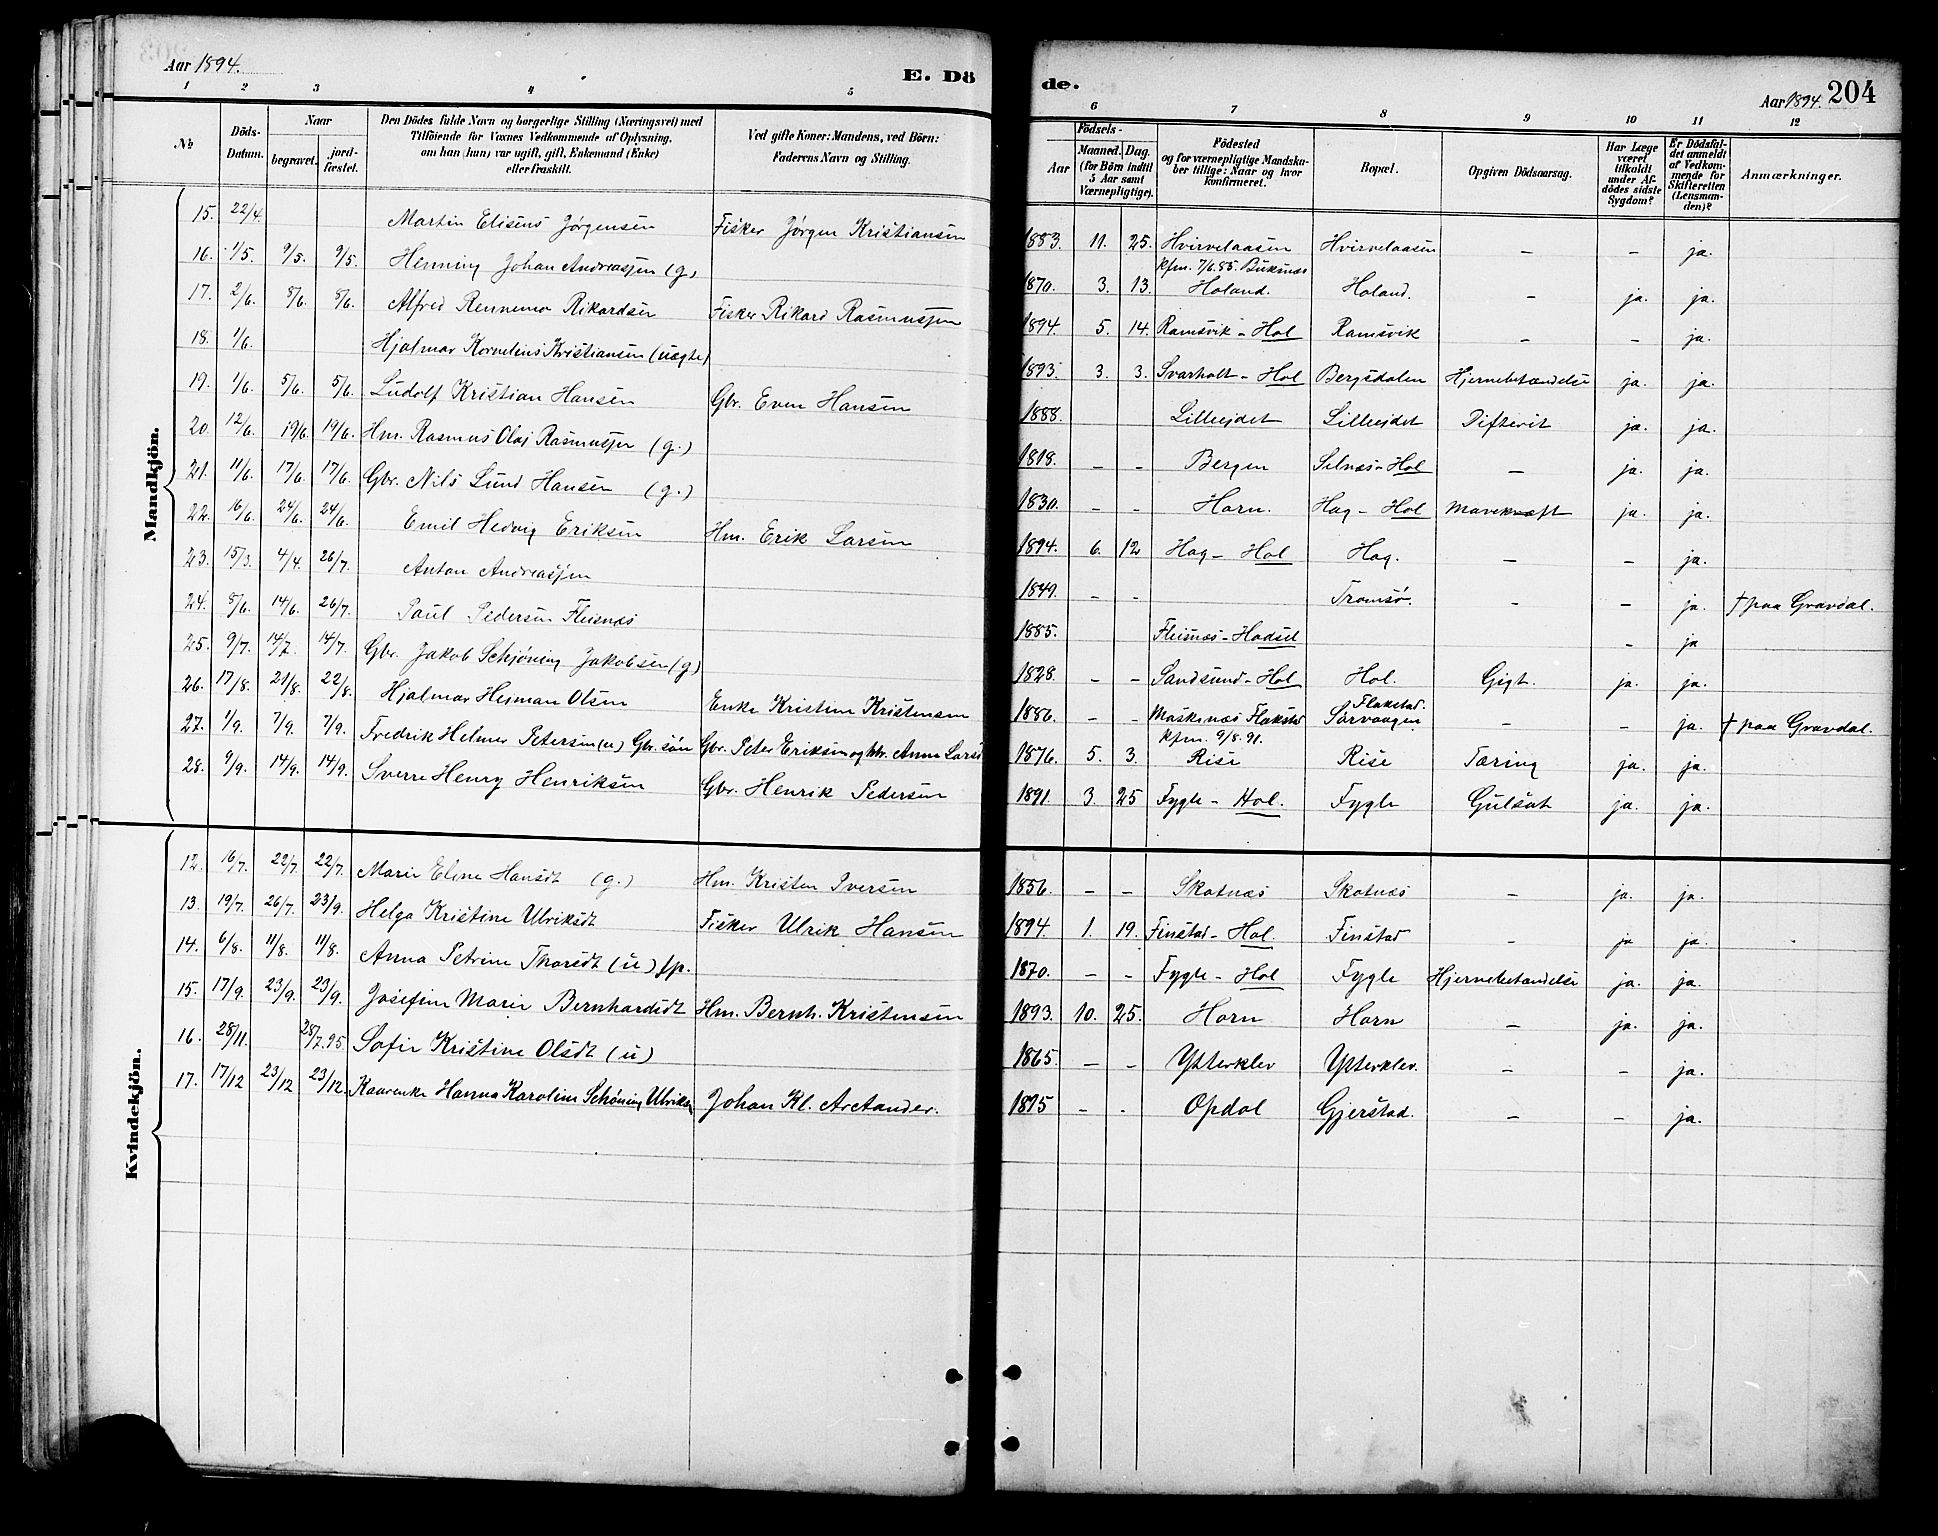 Aar 1894. E. Dö
1 2 3 4 5
№ Döds-Datum. Naar begravet. jordfæstet. Den Dödes fulde Navn og borgerlige Stilling (Næringsvei) med Tilföiende for Voxnes Vedkommende af Oplysning, om han (hun) var ugift, gift, Enkemand (Enke) eller fraskilt. Ved gifte Koner: Mandens, ved Börn: Faderens Navn og Stilling.
Mandkjön.
15. 22/4. Martin Elisens Jørgensen Fisker Jørgen Kristiansen
16. 1/5. 9/5. 9/5. Henning Johan Andreassen (g)
17. 2/6. 8/6. 8/6. Alfred Rennemo Rikardsen Fisker Rikard Rasmussen
18. 1/6. Hjalmar Kornelius Kristiansen (uægte)
19. 1/6. 5/6. 5/6. Ludolf Kristian Hansen Gbr. Even Hansen
20. 12/6. 19/6. 19/6. Hm. Rasmus Olaj Rasmussen (g.)
21. 11/6. 17/6. 17/6. Gbr. Nils Lund Hansen (g.)
22. 16/6. 24/6. 24/6. Emil Hedvig Eriksen Hm. Erik Larsen
23. 15/3. 4/4. 26/7. Anton Andreassen
24. 8/6. 14/6. 26/7. Paul Pedersen Fleisnæs
25. 9/7. 14/7. 14/7. Gbr. Jakob Schjøning Jakobsen (g)
26. 17/8. 21/8. 22/8. Hjalmar Hejman Olsen Enke Kristine Kristensen
27. 1/9. 7/9. 7/9. Fredrik Helmer Petersen (u) Gbr. søn Gbr. Peter Eriksen og htr. Anna Larsd
28. 9/9. 14/9. 14/9. Sverre Henry Henriksen Gbr. Henrik Pedersen
Kvindekjön.
12. 16/7. 22/7. 22/7. Marie Eline Hansdt (g.) Hm. Kristen Iversen
13. 19/7. 26/7. 23/9. Helga Kristine Ulriksdt Fisker Ulrik Hansen
14. 6/8. 11/8. 11/8. Anna Petrine Thorsdt (u) fp.
15. 17/9. 23/9. 23/9. Josefine Marie Bernhardsdt Hm. Bernh. Kristensen
16. 28/11. 28/7.95. Sofie Kristine Olsdt (u)
17. 17/12 23/12 23/12. Kaarenke Hanna Karoline Schøning Ulriksen Johan Kl. Arctander.
de. Aar 1894. 204
6 7 8 9 10 11 12
Födsels- Aar Maaned. Dag. (for Börn indtil 5 Aar samt Værnepligtige). Födested og for værnepligtige Mandskaber tillige: Naar og hvor konfirmeret. Bopæl. Opgiven Dödsaarsag. Har Læge været tilkaldt under Afdödes sidste Sygdom? Er Dödsfaldet anmeldt af Vedkommende for Skifteretten (Lensmanden)? Anmærkninger.
1883. 11. 25. Hvirvelaasen Hvirvelaasen – – ja.
kfm. 7/6.85. Buksnæs
1870. 3. 13. Holand. Holand. – ja. ja.
1894. 5. 14. Ramsvik - Hol Ramsvik – – ja.
1893. 3. 3. Svarholt - Hol Bergsdalen Hjernebetændelse ja. ja.
1888. Lilleejdet Lilleejdet Difterit ja. ja.
1818. – – Bergen Selnæs - Hol – ja. ja.
1830. – – Horn. Hag - Hol Mavekræft ja. ja.
1894. 6. 12 Hag - Hol Hag. – – ja.
1849. – – Tromsø. – – ja. † paa Gravdal.
1885. Fleisnæs - Hadsel – ja
1828. – – Sandsund - Hol Hol. Gigt. ja. ja.
Flakstad.
1886. – – Maskinæs Flakstad Sørvaagen – – ja. † paa Gravdal.
kfm. 9/8.91.
1876. 5. 3. Rise Rise Tæring ja. ja.
1891. 3. 25 Fygle - Hol. Fygle Gulsot ja. ja.
1856. – – Skotnæs Skotnæs – ja. ja.
1894. 1. 19. Finstad - Hol. Finstad – ja ja.
1870. – – Fygle - Hol Fygle Hjernebetændelse ja. ja.
1893. 10. 25. Horn Horn – ja. ja.
1865. – – Ytterklev Ytterklev. – – ja.
1875 – – Opdol Gjerstad. – – ja.